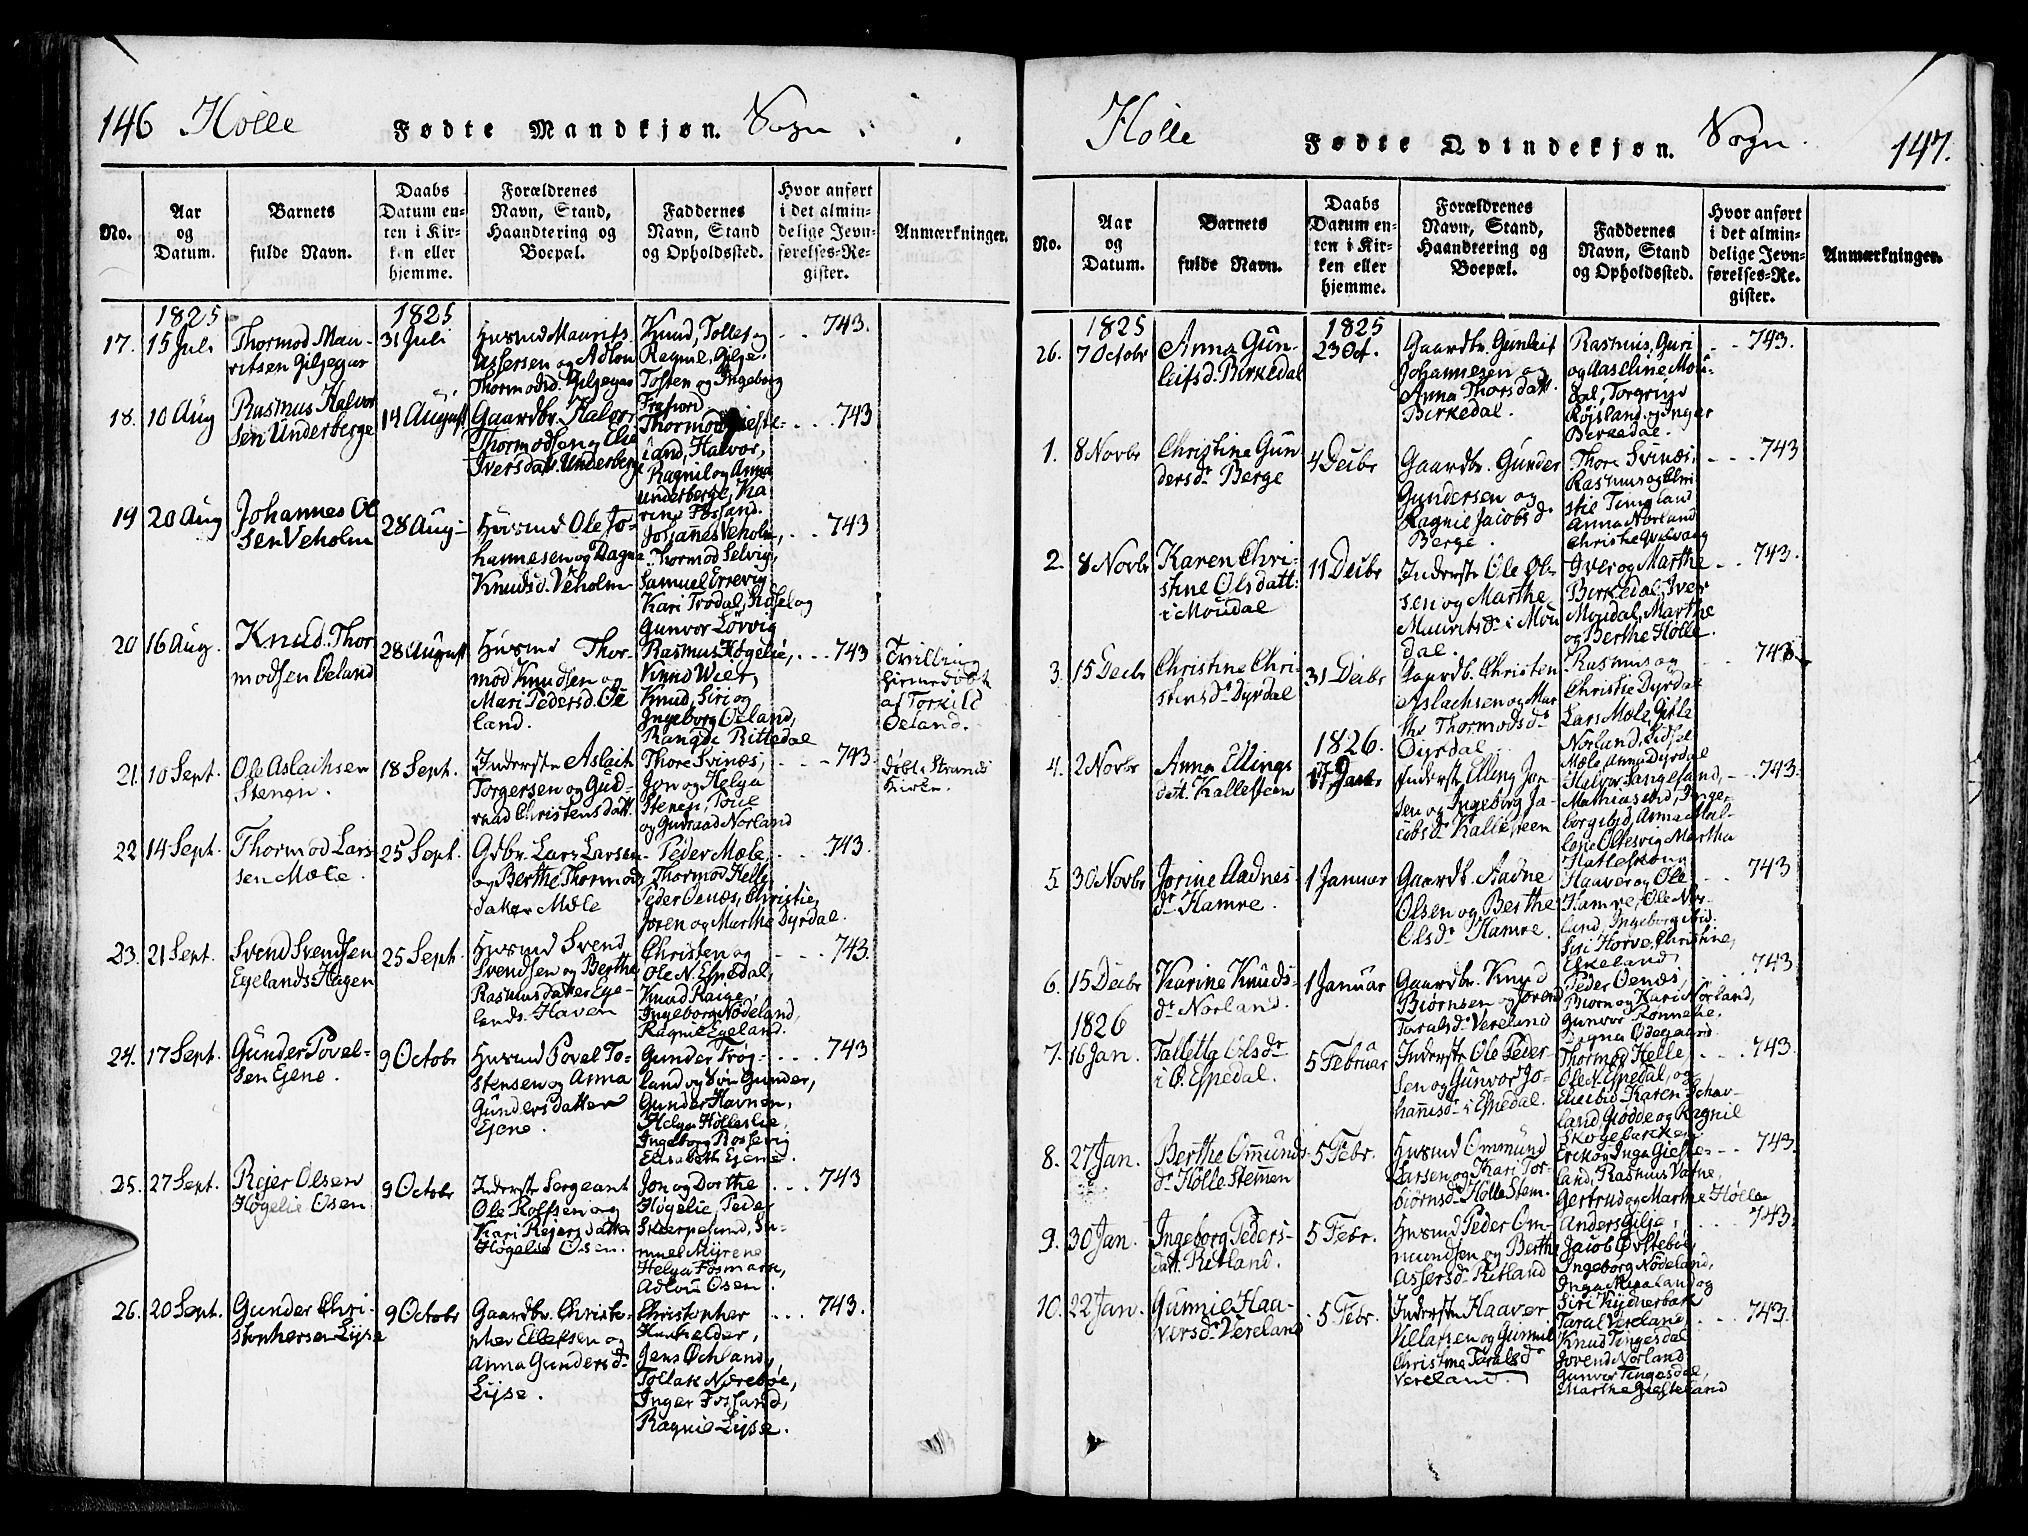 146 Holle Fødte Mandkjøn. Sogn.
No.
Aar
og
Datum.
Barnets
fulde Navn.
Daabs
Datum en-
ten i Kir-
ken eller
hjemme.
Forældrenes
Navn, Stand,
Haandtering og
Boepæl.
Faddernes
Navn, Stand
og Opholdssted.
Hvor anført
i det almin-
delige Jevn-
førelses-Re-
gister.
Anmærkninger.
1825
1825
17. 15 Juli
Thormod Mau-
ritsen Giljegar
31 Juli
Husmd Maurits
Assersen og Adlou
Thormodsd. Giljegar
Knud, Tolles og
Ragnil, Gilje.
Tosten og Ingeborg
Frafiord
743.
18. 10 Aug
Rasmus Halvor
sen Underberge
14 August
Gaardbr. Halvor
Thormodsen og Elie
Iversdatr. Underberge
Thormod Gieste-
land, Halvor,
Ragnil og Anna
Underberge, Ka
rine Fosland.
743
19 20 Aug
Johannes Ol
sen Veholm
28 Aug
Husmd Ole Jo-
hannesen og Dagna
Knudsd. Veholm
Johannes Veholm,
Thormod Selvig,
Samuel Errevig
Kari Trodal, Sidsel og
Gunvor Lørvig
743
20 16 Aug.
Knud Thor
modsen Øeland
28 August
Husmd Thor-
mod Knudsen og
Mari Pedersd. Øe
land.
Rasmus Høgelie,
Knud Wier,
Knud, Siri og
Ingeborg Øeland,
Rangde Rittedal
743
Tvilling
hiemedøbt
af Torkild
Øeland.
21. 10 Sept.
Ole Aslachsen
Stenen.
18 Sept.
Inderste Aslach
Torgersen og Gud-
raad Christensdatt.
Thore Svinæs,
Jon og Helga
Stenen, Toue
og Gudraad Norland
743
døbt i Strands
Kirke.
22 14 Sept.
Thormod Lars
sen Mæle.
25 Sept.
Gdbr. Lars Larsen
og Berthe Thormods
datter Mæle
Peder Mæle,
Thormod Helle,
Peder Oenæs, Christie,
Joren og Marthe Dyrdal.
743.
23. 21 Sept.
Svend Svendsen
Egelands Hagen
25 Sept.
Husmd Svend
Svendsen og Berthe
Rasmusdatter Ege-
lands Haven
Christen og
Ole N. Espedal,
Knud Raige
Ingeborg Nødeland,
Ragnie Egeland.
743.
24. 17 Sept.
Gunder Povel-
sen Eiene.
9 Octobr
Husmd Povel To-
stensen og Anna
Gundersdatter
Eiene.
Gunder Frøg-
land og Søn Gunder,
Gunder Havnen,
Helga Holleslie,
Ingeborg Rossevig
Elisabeth Eiene.
743
25. 27 Sept.
Reier Olsen
Høgelie Osen
9 Octobr
Inderste Sergeant
Ole Rolfsen og
Kari Reiersdatter
Høgelie Osen.
Jon og Dorthe
Høgelie, Peder
Skierpesund, Sa-
muel Myrene
Helga Fosmark,
Adlou Osen
743
26. 20 Sept.
Gunder Chri-
stophersen Lyse
9 Octobr
Gaardbr. Christo-
pher Ellefsen og
Anna Gundersd.
Lyse.
Christopher
Jens Øchland,
Tollak Nærebøe,
Inger Fossand,
Ragnie Lyse.
743.
Holle Fødte Qvindekjøn. Sogn. 147.
No.
Aar
og
Datum.
Barnets
fulde Navn.
Daabs
Datum en-
ten i Kir-
ken eller
hjemme.
Forældrenes
Navn, Stand,
Haandtering og
Boepæl.
Faddernes
Navn, Stand
og Opholdssted.
Hvor anført
i det almin-
delige Jevn-
førelses-Re-
gister.
Anmærkninger.
1825
1825
26. 7 Octobr
Anna Gun-
leifsd. Birkedal
23 Oct.
Gaardbr. Gunleif
Johannesen og
Anna Thorsdatt.
Birkedal.
Rasmus, Guri
og Aaseline Mou-
dal, Torgrim
Røisland og Inger
Birkedal.
743.
1. 8 Novbr
Christine Gun
dersdr Berge
4 Decbr
Gaardbr. Gunder
Gundersen og
Ragnie Jacobsdr
Berge.
Thore Svinæs,
Rasmus og Chri
stie Tingland
Anna Norland
743
2. 8 Novbr
Karen Chri-
stine Olsdatt.
i Moudal
11 Decbr
Inderste Ole Ol-
sen og Marthe
Mauritsdr i Mou
dal.
Iver og Marthe
Birkedal, Iver
Moudal, Marthe
og Berthe Holle.
743.
3. 15 Decbr
Christine Chri-
stensdr Dyrdal
31 Decbr
Gaardb. Christen
Aslachsen og Mar
the Thormodsdr
Dyrdal
Rasmus og
Christie Dyrdal
Lars Mæle, Gitle
Norland, Sidsel
Mæle, Anna Dyrdal
743
1826.
4. 2 Novbr
Anna Ellings
datt. Kallesteen
Inderste Elling Jon
sen og Ingeborg Ja-
cobsdr Kallesteen
Halvor Tangeland,
743.
5. 30 Novbr
Jorine Aadnes
dr Hamre.
1 Januar
Gaardb. Aadne
Olsen og Berthe
Olsdr Hamre.
Haaver og Ole
Hamre, Ole Nor-
land, Ingeborg Aid.
Siri Horve, Christine,
Eskeland
743
6. 15 Decbr
Karine Knuds-
dr Norland.
1 Januar
Gaardbr. Knud
Biørnsen og Jorend
Taralsdr Vereland
Peder Oenæs,
Biorn og Kari Norland,
Gunvor Rønnelie,
Dagna Ødegaard.
743
1826
7. 16 Jan.
Talletta Olsdr
i Ø. Espedal.
5 Februar
Inderste Ole Peder-
sen og Gunvor Jo-
hannisdr i Espedal.
Thormod Helle
Ole N. Espedal, og
Karen Schav-
land, Glodde og Ragnil
Skogebarken
743.
8. 27 Jan.
Berthe Ommunds-
dr Holle Stemen
5 Febr.
Husmd Ommund
Larsen og Kari Tor-
biørnsdr Holle Stem.
Erik og Inga Gieste-
land, Rasmus Vatne,
Gertrud og Marthe Holle
743
9. 30 Jan.
Ingeborg Peders-
datt. Ritland.
5 Febr.
Husmd Peder Om-
mundsen og Berthe
Assersdr Ritland
Anders Gilje,
Jacob Øvstebøe,
Ingeborg Nødeland,
Inga Meland og
Siri Kydnerbark
743.
10. 22 Jan.
Gunnie Haa-
versdr Vereland
5 Febr.
Inderste Haaver
Villatsen og Gunnil
Christina Taralsdr
Vereland.
Taral Vereland
Knud Tingesdal
Jorend Norland
Gunvor Tingesdal,
Marthe Giesteland
743.